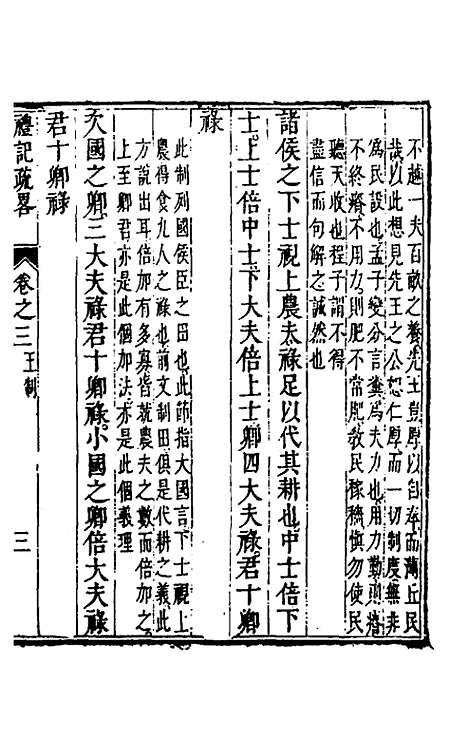 不越一夫百畝之養先王豈厚以自奉而薄丘民
哉以此想見先王之公恕仁厚而一切制度無非
爲民設也孟子變分言糞爲夫力也用力勤則瘠
不終瘠不用力則肥不常肥教民稼穡慎勿使民
聽天收也程子謂不得
盡信而句解之誠然也
諸侯之下士視上農夫祿足以代其耕也中士倍下
士上士倍中士下大夫倍上士卿四大夫祿君十卿
祿
此制列國侯臣之田也此節指大國言下士視上
農得食九人之祿也前文制田俱是代耕之義此
方說出耳倍加有多寡皆就農夫之數而倍加之
上至卿君亦是此個加法亦是此個義理
次國之卿三大夫祿君十卿祿小國之卿倍大夫祿
君十卿祿
禮記疏畧 卷之三 王制 三